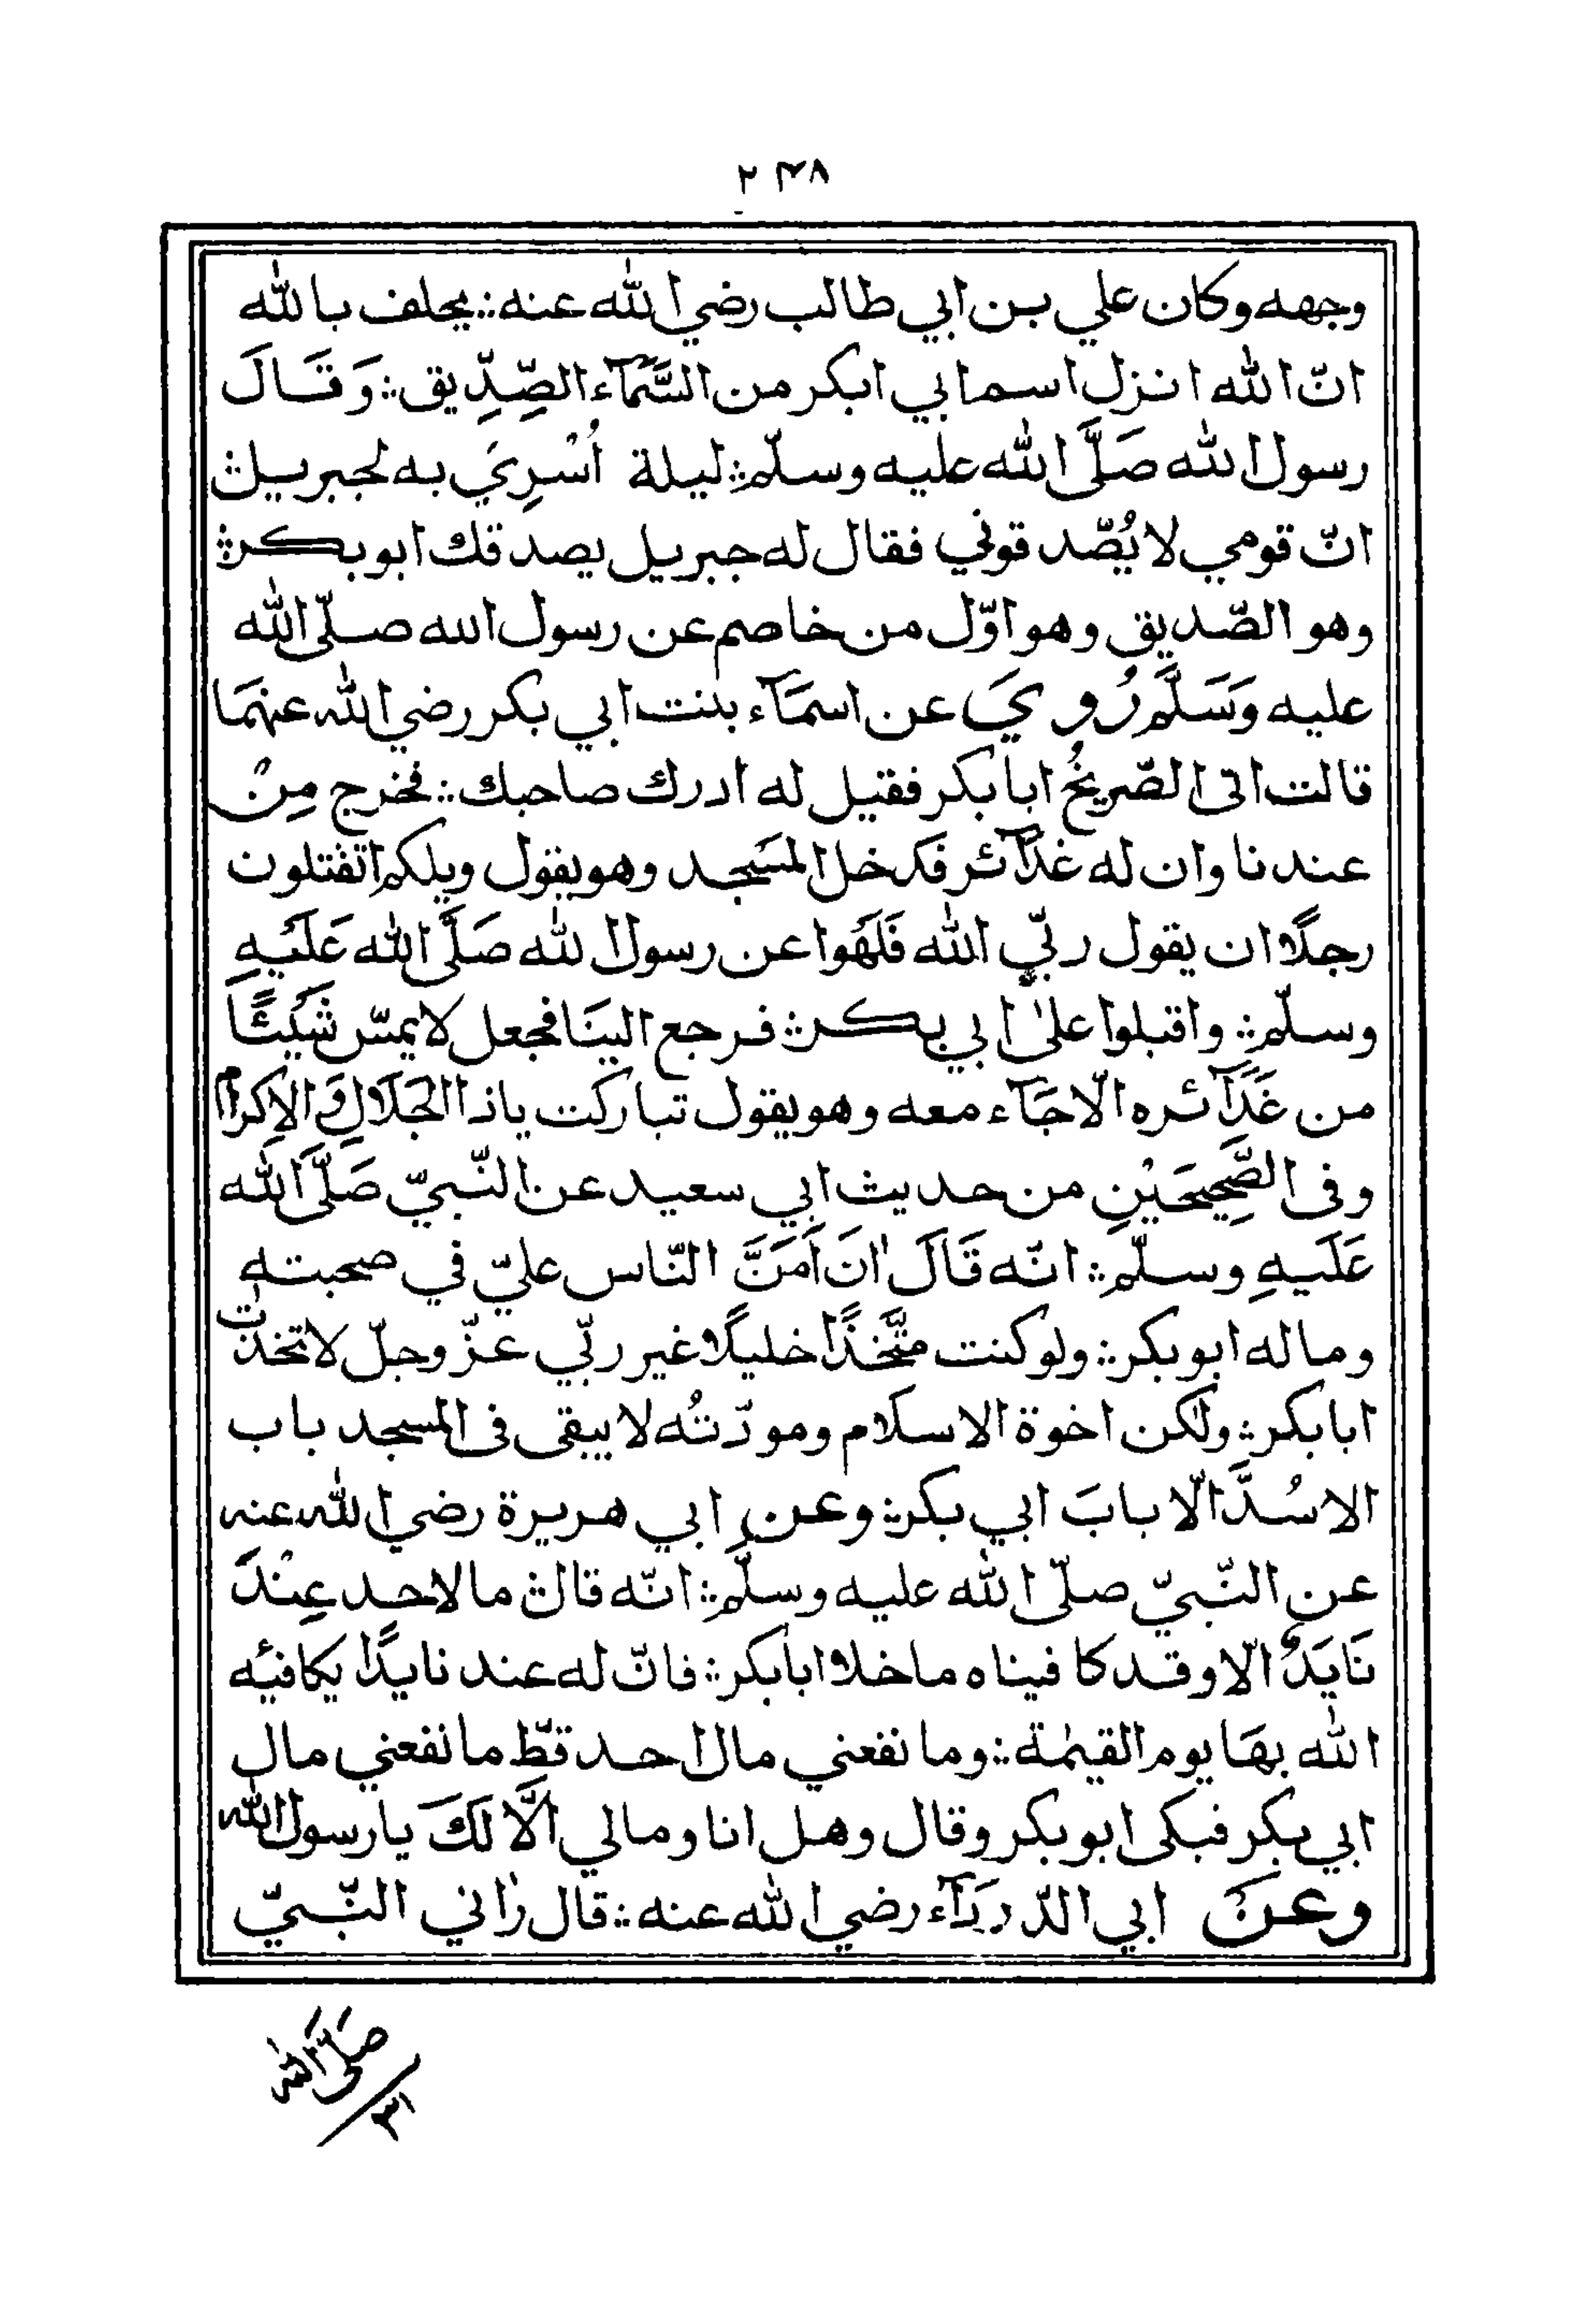 ٢٤٨
وجهه وكان علي بن ابي طالب رضي الله عنه؞ يحلف بالله
انّ الله انزل اسم ابي ابكر من السَّمَآء الصِّدِّيق؞ وَقَالَ
رسول الله صَلَّى الله عليه وسلّم؞ ليلة اُسْرِيَ به لجبريل؞
انّ قومي لا يُصّدقوني فقال له جبريل يصدقك ابو بكر؞
وهو الصّديق وهو اوّل من خاصم عن رسول الله صلّى الله
عليه وَسَلَّمَ رُوِيَ عن اسمَآء بنت ابي بكر رضي الله عنهمَا
قالت اتى الصّريخُ ابا بكر فقيل له ادرك صاحبك؞ فخرج مِنْ
عندنا وان له غدَآئر فَدخل المسَجد وهو يقول ويلكم اتقتلون
رجلًا ان يقول ربّي الله فَلَهَوا عن رسول الله صَلَّى الله عَلَيْهِ
وسلّم؞ واقبلوا على ابي بكر؞ فرجع الينَا فجعل لا يمسّ شَيْئًا
من غَدَآئره الّا جَآء معه وهو يقول تباركت ياذا الجَلَالِ وَالاكرام
وفى الصَّحِيحَيْنِ من حديث ابي سعيد عن النّبيّ صَلَّى الله
عَلَيهِ وسلّم؞ انّه قَالَ انَ اَمَنَّ النّاس عليّ في صحبته
وماله ابو بكر؞ ولو كنت متَّخذًا خليلًا غير ربّي عزّ وجلّ لاتخذت
ابا بكر؞ ولكن اخوة الاسلام ومودّتُه لا يبقى فى المسجد باب
الا سُدَّ الّا بابَ ابي بكر؞ وعن ابي هريرة رضي الله عنه
عن النّبيّ صلّى الله عليه وسلّم؞ انّه قال؞ ما لاحد عِنْدَ
نَا يَدٌ الّا وقد كافيناه ما خلا ابا بكر؞ فانّ له عندنا يدًا يكافيْه
الله بهَا يوم القيٰمة؞ وما نفعني مال احد قطّ ما نفعني مال
ابي بكر فبكى ابو بكر وقال وهل انا ومالي الَّا لَكَ يا رسول الله
وعَنْ ابي الدّردَآء رضي الله عنه؞ قال رٰاني النّبيّ
صَلَّى الله
٣١